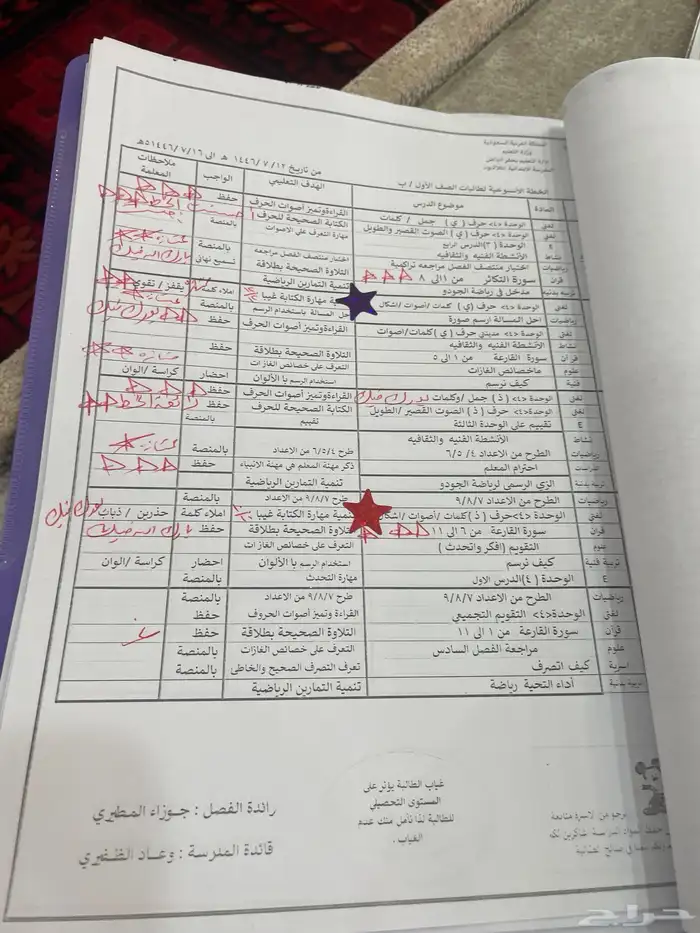 المملكة العربية السعودية
وزارة التعليم
الخطة الأسبوعية لطالبات الصف الأول / ب
من تاريخ ١٤٤٦/٧/١٢ هـ الى ١٤٤٦/٧/١٦هـ
المادة موضوع الدرس الهدف التعليمي الواجب ملاحظات المعلمة
لغتي الوحدة <٤> حرف ( ي ) جمل / كلمات القراءة وتميز أصوات الحرف حفظ
لغتي الوحدة <٤> حرف ( ي ) الصوت القصير والطويل الكتابة الصحيحة للحرف
E الوحدة (٣) الدرس الرابع مهارة التعرف على الاصوات بالمنصة
نشاط الأنشطة الفنيه والثقافيه
رياضيات اختبار منتصف الفصل مراجعه تراكمية اختبار منتصف الفصل مراجعه بالمنصة
قرآن سورة التكاثر من ١ الى ٨ التلاوة الصحيحة بطلاقة تسميع نهائي بارك الله فيك
تربية بدنية مدخل في رياضة الجودو تنمية التمارين الرياضية
لغتي الوحدة <٤> حرف (ي) كلمات/أصوات/اشكال مهارة الكتابة غيبا املاء كلمة يقفز / تقوى
رياضيات احل المسالة ارسم صورة حل المسالة باستخدام الرسم بالمنصة
لغتي الوحدة <٤> مدينتي حرف ( ي ) كلمات/أصوات القراءة وتميز أصوات الحرف حفظ بورك فيك
نشاط الأنشطة الفنيه والثقافيه
قرآن سورة القارعة من ١ الى ٥ التلاوة الصحيحة بطلاقة حفظ ممتازه
علوم ماخصائص الغازات التعرف على خصائص الغازات
فنية كيف نرسم استخدام الرسم با الألوان احضار كراسة /الوان
لغتي الوحدة <٤> ( ذ ) جمل /وكلمات بورك فيك القراءة وتميز أصوات الحرف حفظ
لغتي الوحدة <٤> حرف ( ذ ) الصوت القصير /الطويل الكتابة الصحيحة للحرف حفظ رائعة
E تقييم على الوحدة الثالثة تقييم بالمنصة
نشاط الأنشطة الفنيه والثقافيه
رياضيات الطرح من الاعداد ٥/٦/٤ طرح ٦/٥/٤ من الاعداد بالمنصة ممتازه
احترام المعلم ذكر مهنة المعلم هي مهنة الانبياء حفظ
تربية بدنية الزي الرسمي لرياضة الجودو تنمية التمارين الرياضية
رياضيات الطرح من الاعداد ٩/٨/٧ طرح ٩/٨/٧ من الاعداد بالمنصة
لغتي الوحدة <٤> حرف ( ذ ) كلمات /أصوات/ اشكال تنمية مهارة الكتابة غيبا املاء كلمة حذرين / ذباب بورك فيك
قرآن سورة القارعة من ٦ الى ١١ تلاوة الصحيحة بطلاقة حفظ بارك الله فيك
علوم التقويم (افكر واتحدث ) التعرف على خصائص الغازات
تربية فنية كيف نرسم استخدام الرسم با الألوان احضار كراسة /الوان
E الوحدة (٤) الدرس الاول مهارة التحدث بالمنصة
رياضيات الطرح من الاعداد ٩/٨/٧ طرح ٩/٨/٧ من الاعداد بالمنصة
لغتي الوحدة <٤> التقويم التجميعي القراءة وتميز أصوات الحروف حفظ
قرآن سورة القارعة من ١ الى ١١ التلاوة الصحيحة بطلاقة حفظ
علوم مراجعة الفصل السادس التعرف على خصائص الغازات بالمنصة
اسرية كيف اتصرف تعرف التصرف الصحيح والخاطئ بالمنصة
تربية بدنية أداء التحية رياضة تنمية التمارين الرياضية
غياب الطالبة يؤثر على
المستوى التحصيلي
للطالبة لذا نأمل منك عدم
الغياب .
رائدة الفصل : جوزاء المطيري
قائدة المدرسة : وعاد الظفيري
نرجو من الاسرة متابعة
شاكرين لكم
حراج